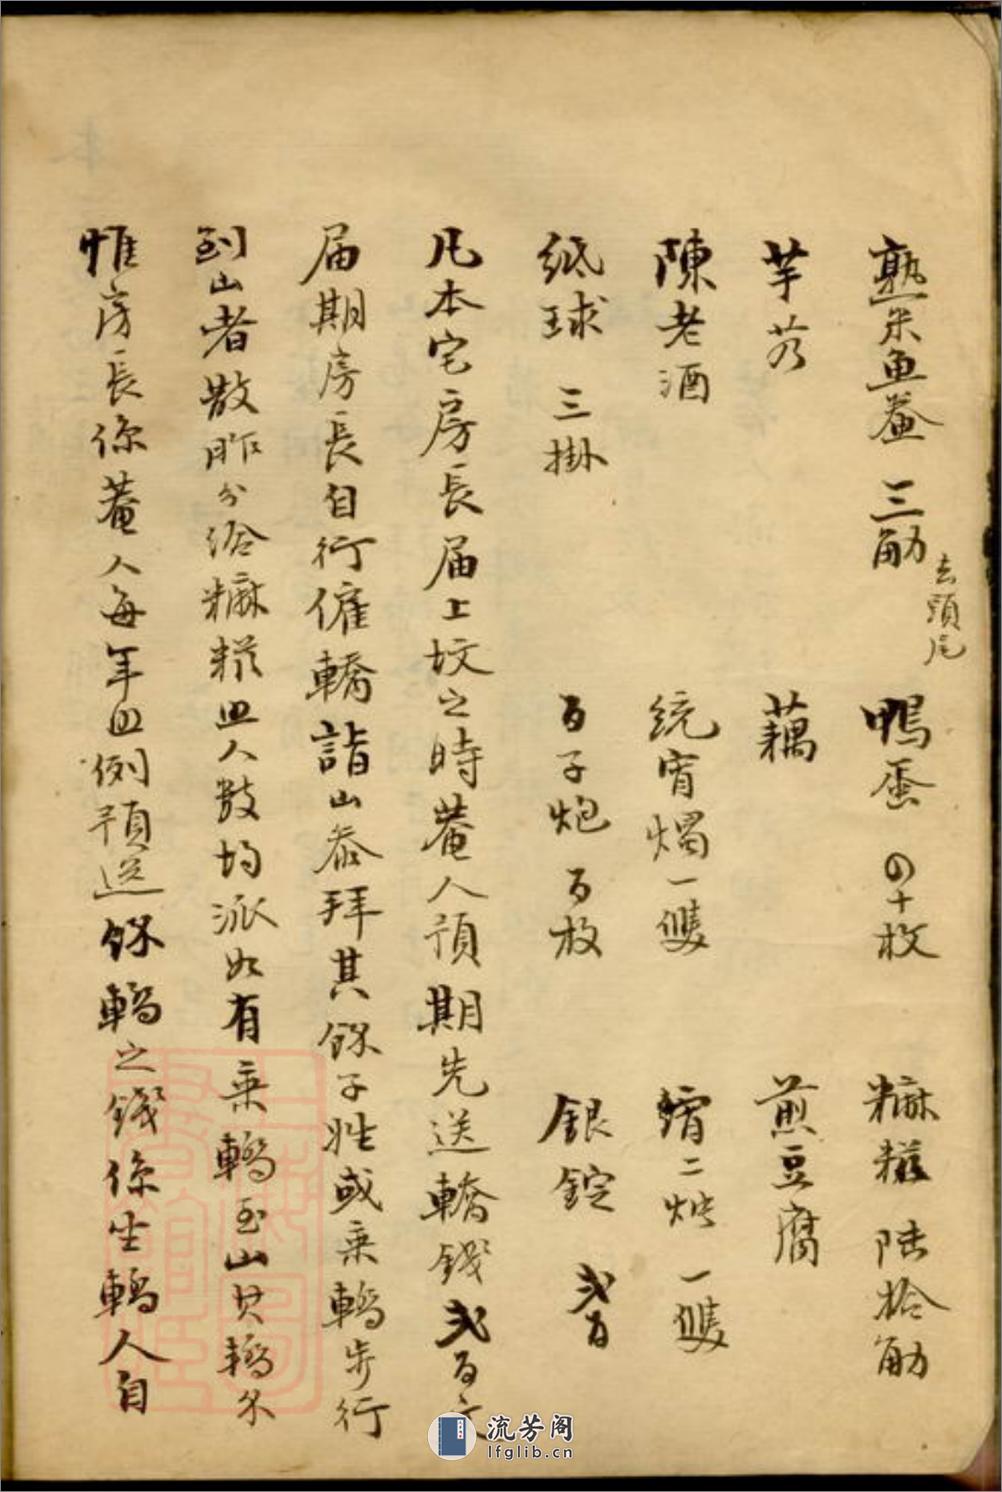 熟朱魚鯗 三觔 去頭尾 鴨蛋 四十枚 糍 陸拾觔
芋艿 藕 煎豆腐
陳老酒 統宵燭一雙 二炷 一雙
紙球 三掛 百子炮 百枚 銀錠 弍百
凡本宅房長届上坟之時菴人預期先送轎錢弍百文
届期房長自行僱轎詣山叅拜其餘子姓或乗轎步行
到山者散胙分給糍照人數均派如有乗轎至山其轎
惟房長係菴人每年照例預送餘轎之錢係坐轎人自
流芳阁
lfglib.cn